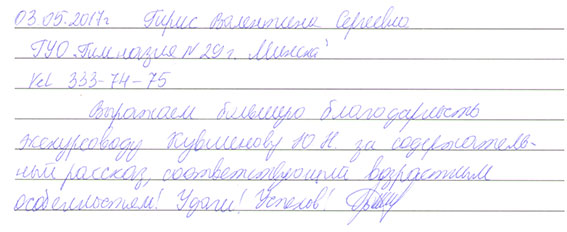 03.05.2017г Гирис Валентина Сергеевна
ГУО "Гимназия N 29 г. Минска"
Vel 333-74-75
Выражаем большую благодарность
экскурсоводу Ю Н. за содержатель-
ный рассказ, соответствующий возрастным
особенностям! Удачи! Успехов!